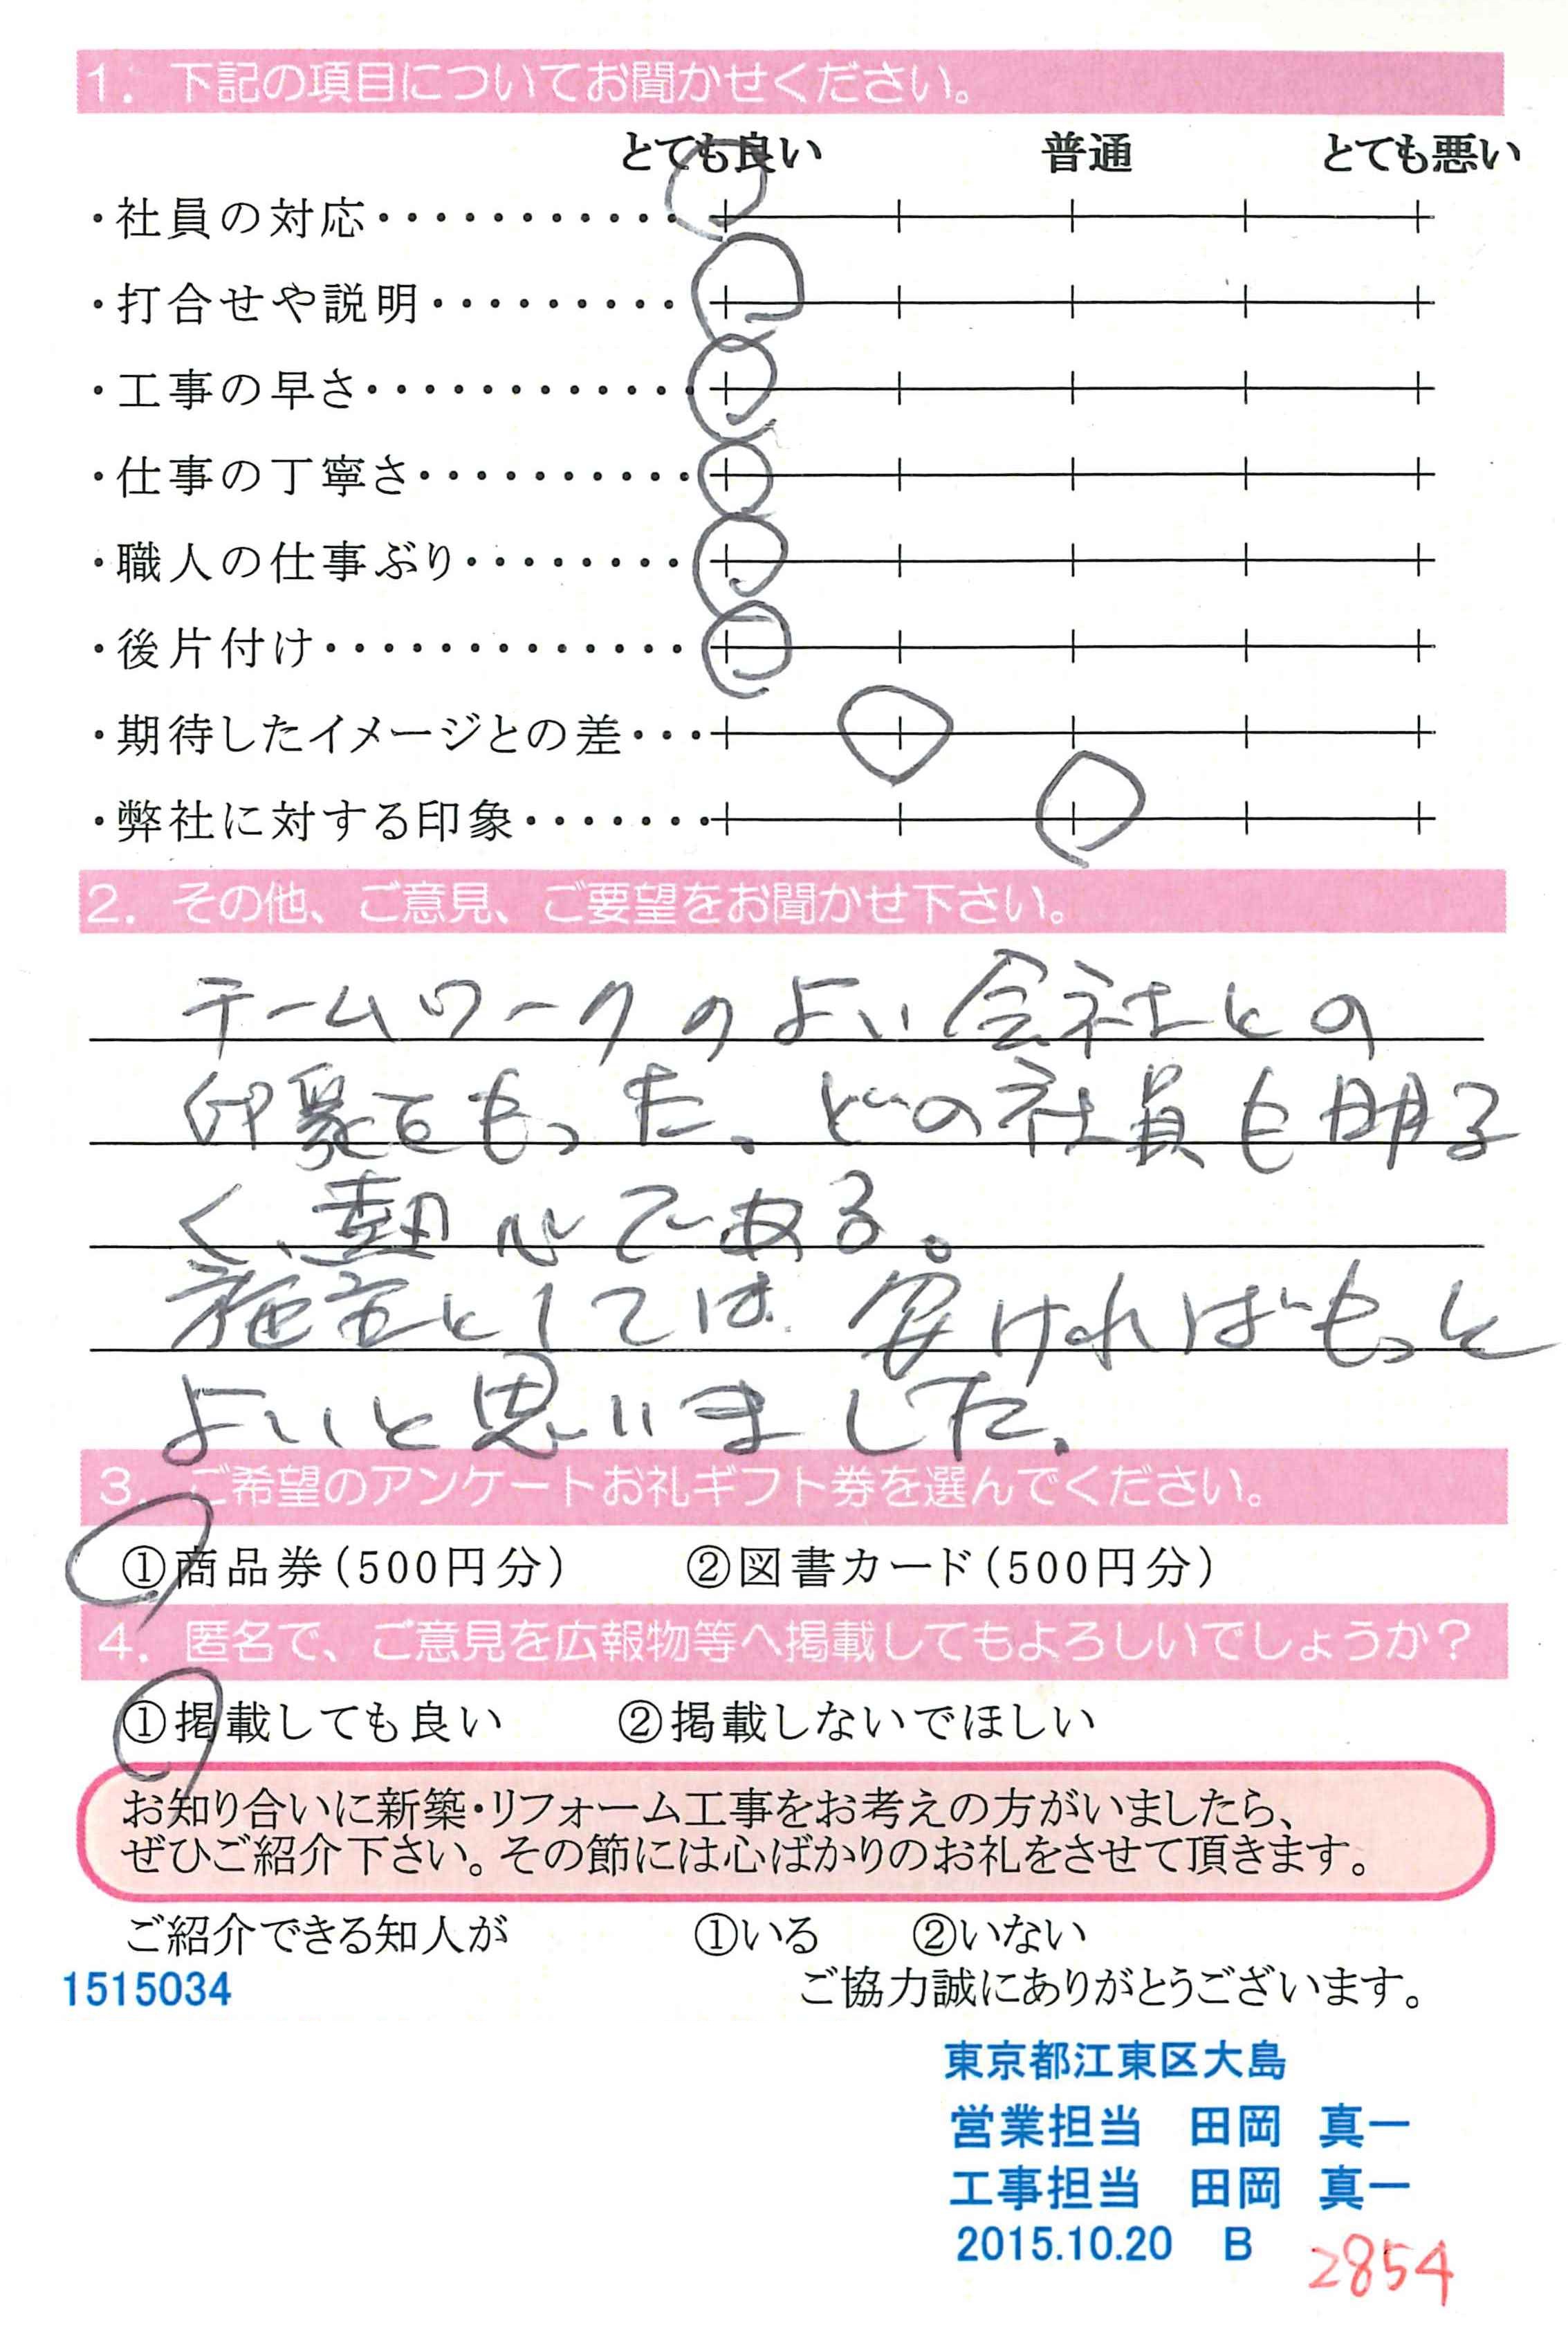 1. 下記の項目についてお聞かせください。
とても良い 普通 とても悪い
・社員の対応・・・・・・・・・・・
・打合せや説明・・・・・・・・・
・工事の早さ・・・・・・・・・・・・
・仕事の丁寧さ・・・・・・・・・・
・職人の仕事ぶり・・・・・・・・
・後片付け・・・・・・・・・・・・・
・期待したイメージとの差・・・
・弊社に対する印象・・・・・・・
2. その他、ご意見、ご要望をお聞かせ下さい。
チームワークのよい会社との
印象をもった。どの社員も明る
く、熱心である。
施主としては安ければもっと
よいと思いました。
3. ご希望のアンケートお礼ギフト券を選んでください。
①商品券(500円分) ②図書カード(500円分)
4. 匿名で、ご意見を広報物等へ掲載してもよろしいでしょうか?
①掲載しても良い ②掲載しないでほしい
お知り合いに新築・リフォーム工事をお考えの方がいましたら、
ぜひご紹介下さい。その節には心ばかりのお礼をさせて頂きます。
ご紹介できる知人が ①いる ②いない
1515034 ご協力誠にありがとうございます。
東京都江東区大島
営業担当 田岡 真一
工事担当 田岡 真一
2015.10.20 B 2854